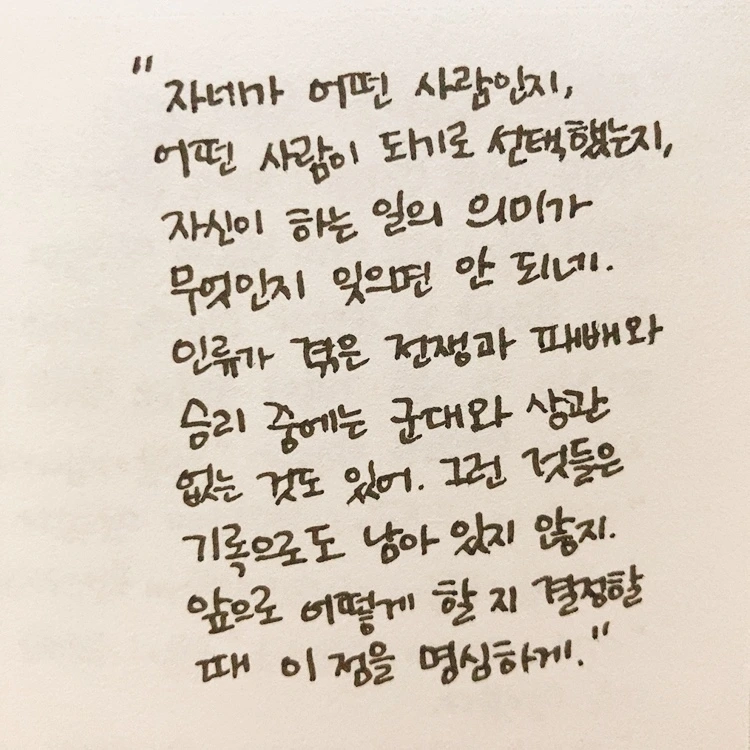 "자네가 어떤 사람인지,
어떤 사람이 되기로 선택했는지,
자신이 하는 일의 의미가
무엇인지 잊으면 안 되네.
인류가 겪은 전쟁과 패배와
승리 중에는 군대와 상관
없는 것도 있어. 그런 것들은
기록으로도 남아 있지 않지.
앞으로 어떻게 할 지 결정할
때 이 점을 명심하게."